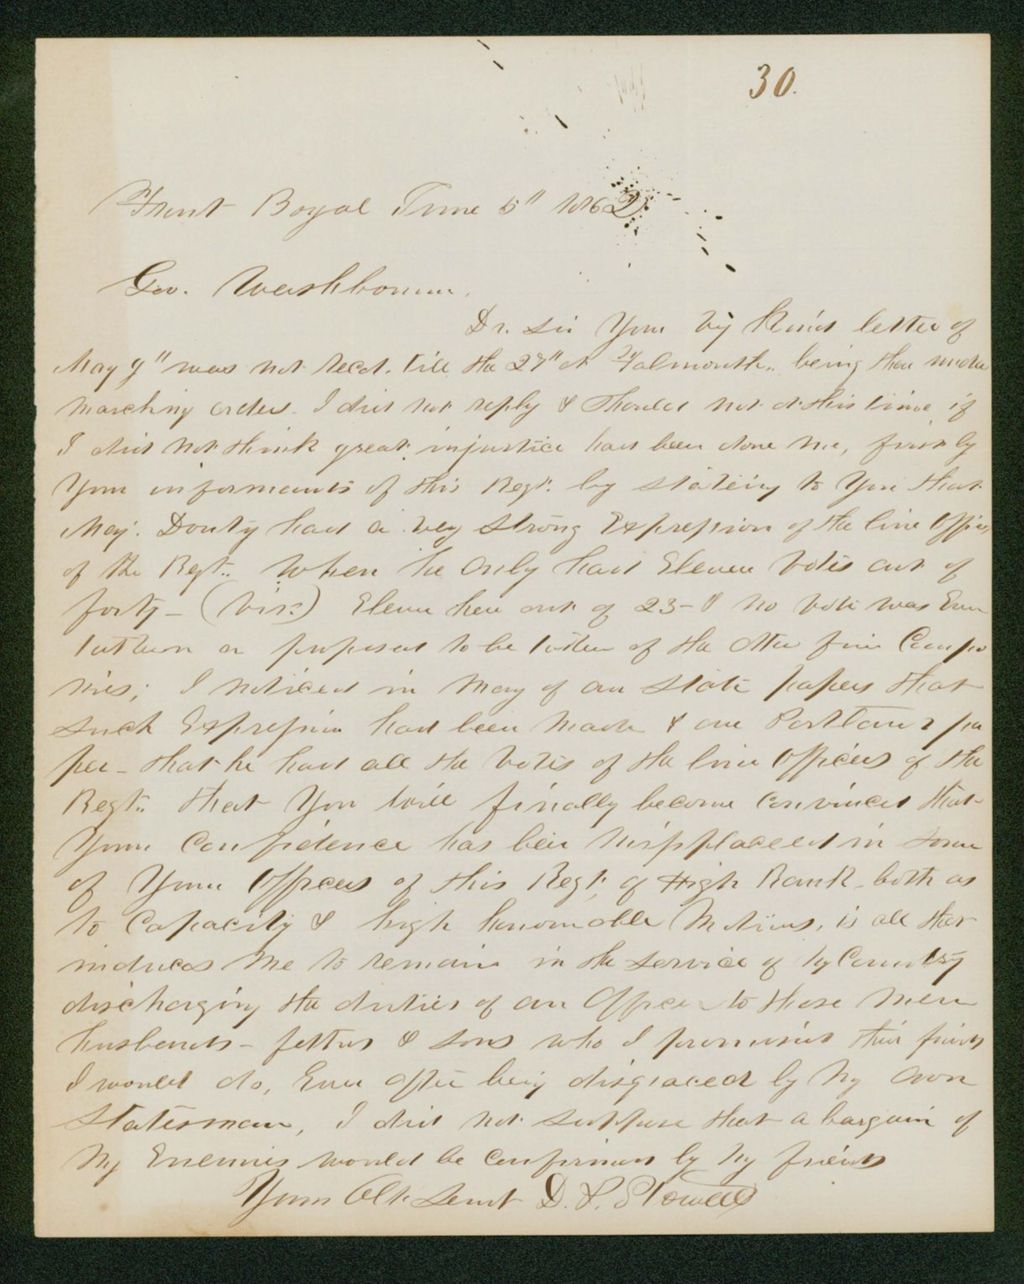 30.
Front Royal June 5" 1862
Gov. Washbourn.
Dr. Sir Your vy kind letter of
May 9" was not recd. till the 27" at Falmouth. being then under
marching orders. I did not reply & should not at this time if
I did not think great injustice had been done me, first by
Your informants of this Regt. by stateing to You that
Maj. Douty had a vey strong Expression of the line Offices
of the Regt. When he Only had Eleven Votes out of
forty - (viz:) Eleven here out of 23 - & no Vote was Even
taken or proposed to be taken of the other five Compa
nies; I noticed in Many of our State papers that
such Expression had been made & one Portland pa
per - that he had all the Votes of the line Officers of the
Regt. that You will finally become Convinced that
Your Confidence has been missplaceed in some
of Your Officers of this Regt. of High Rank - both as
to Capacity & high honorable Motives, is all that
induces Me to remain in the Service of my Country
discharging the duties of an Officer to those men
husbands - fathers & sons who I promised their friends
I would do, Even after being disgraced by My Own
Statesman, I did not suppose that a bargain of
My Enemies would be Confirmed by My friends
Your Obt Servt D. P. Stowell